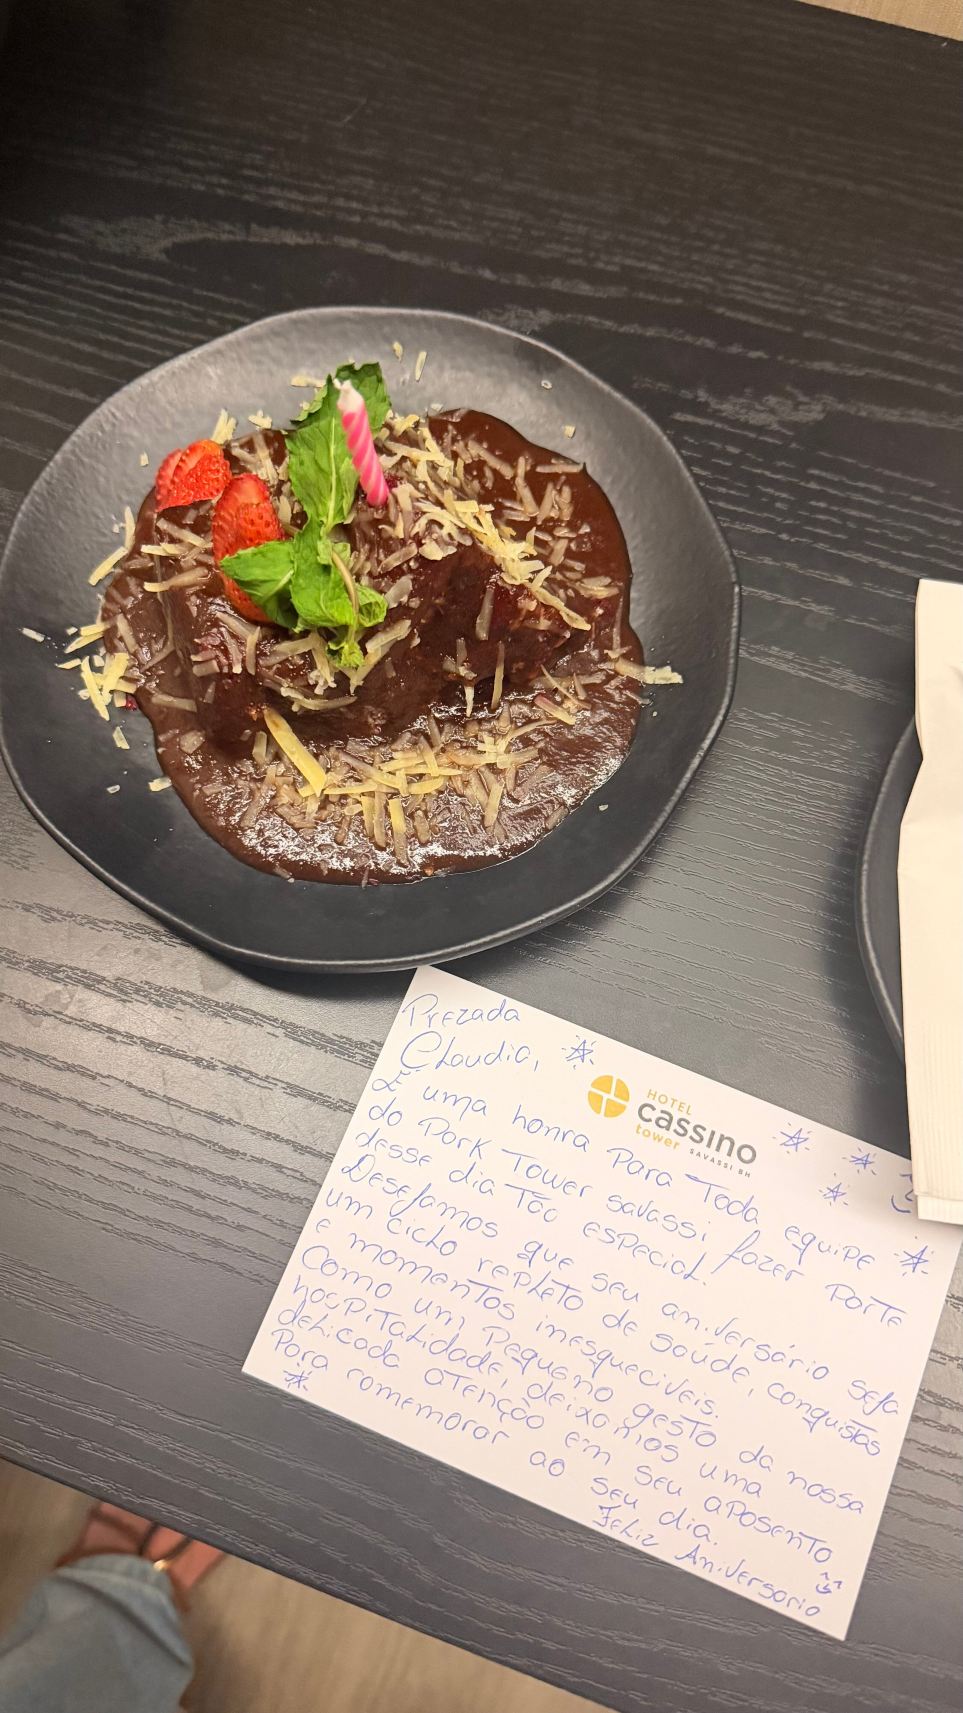 Prezada
Claudia,
HOTEL
cassino
tower SAVASSI BH
É uma honra para Toda equipe
do Park Tower savassi fazer parte
desse dia Tão especial.
Desejamos que seu aniversário seja
um ciclo repleto de saúde, conquistas
e momentos inesqueciveis.
Como um pequeno gesto da nossa
hospitalidade, deixamos uma
delicada atenção em seu aposento
Para comemorar ao seu dia.
Feliz Aniversario